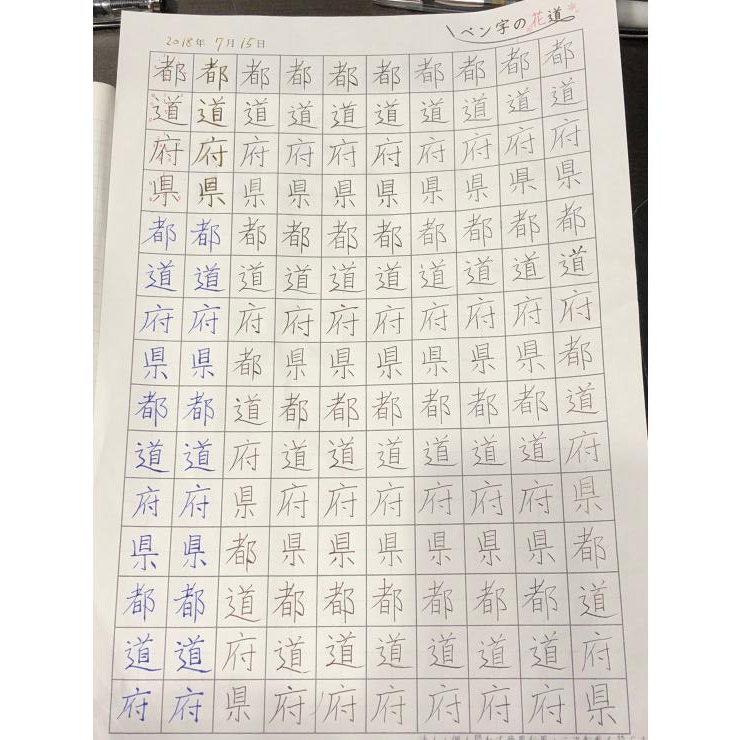 ペン字の花道
2018年 7月 15日
都都都都都都都都都都
道道道道道道道道道道
府府府府府府府府府府
県県県県県県県県県県
都都都都都都都都都都
道道道道道道道道道道
府府府府府府府府府府
県県都県県県県県県都
都都道都都都都都都道
道道府道道道道道道府
府府県府府府府府府県
県県都県県県県県県都
都都道都都都都都都道
道道府道道道道道道府
府府県府府府府府府県